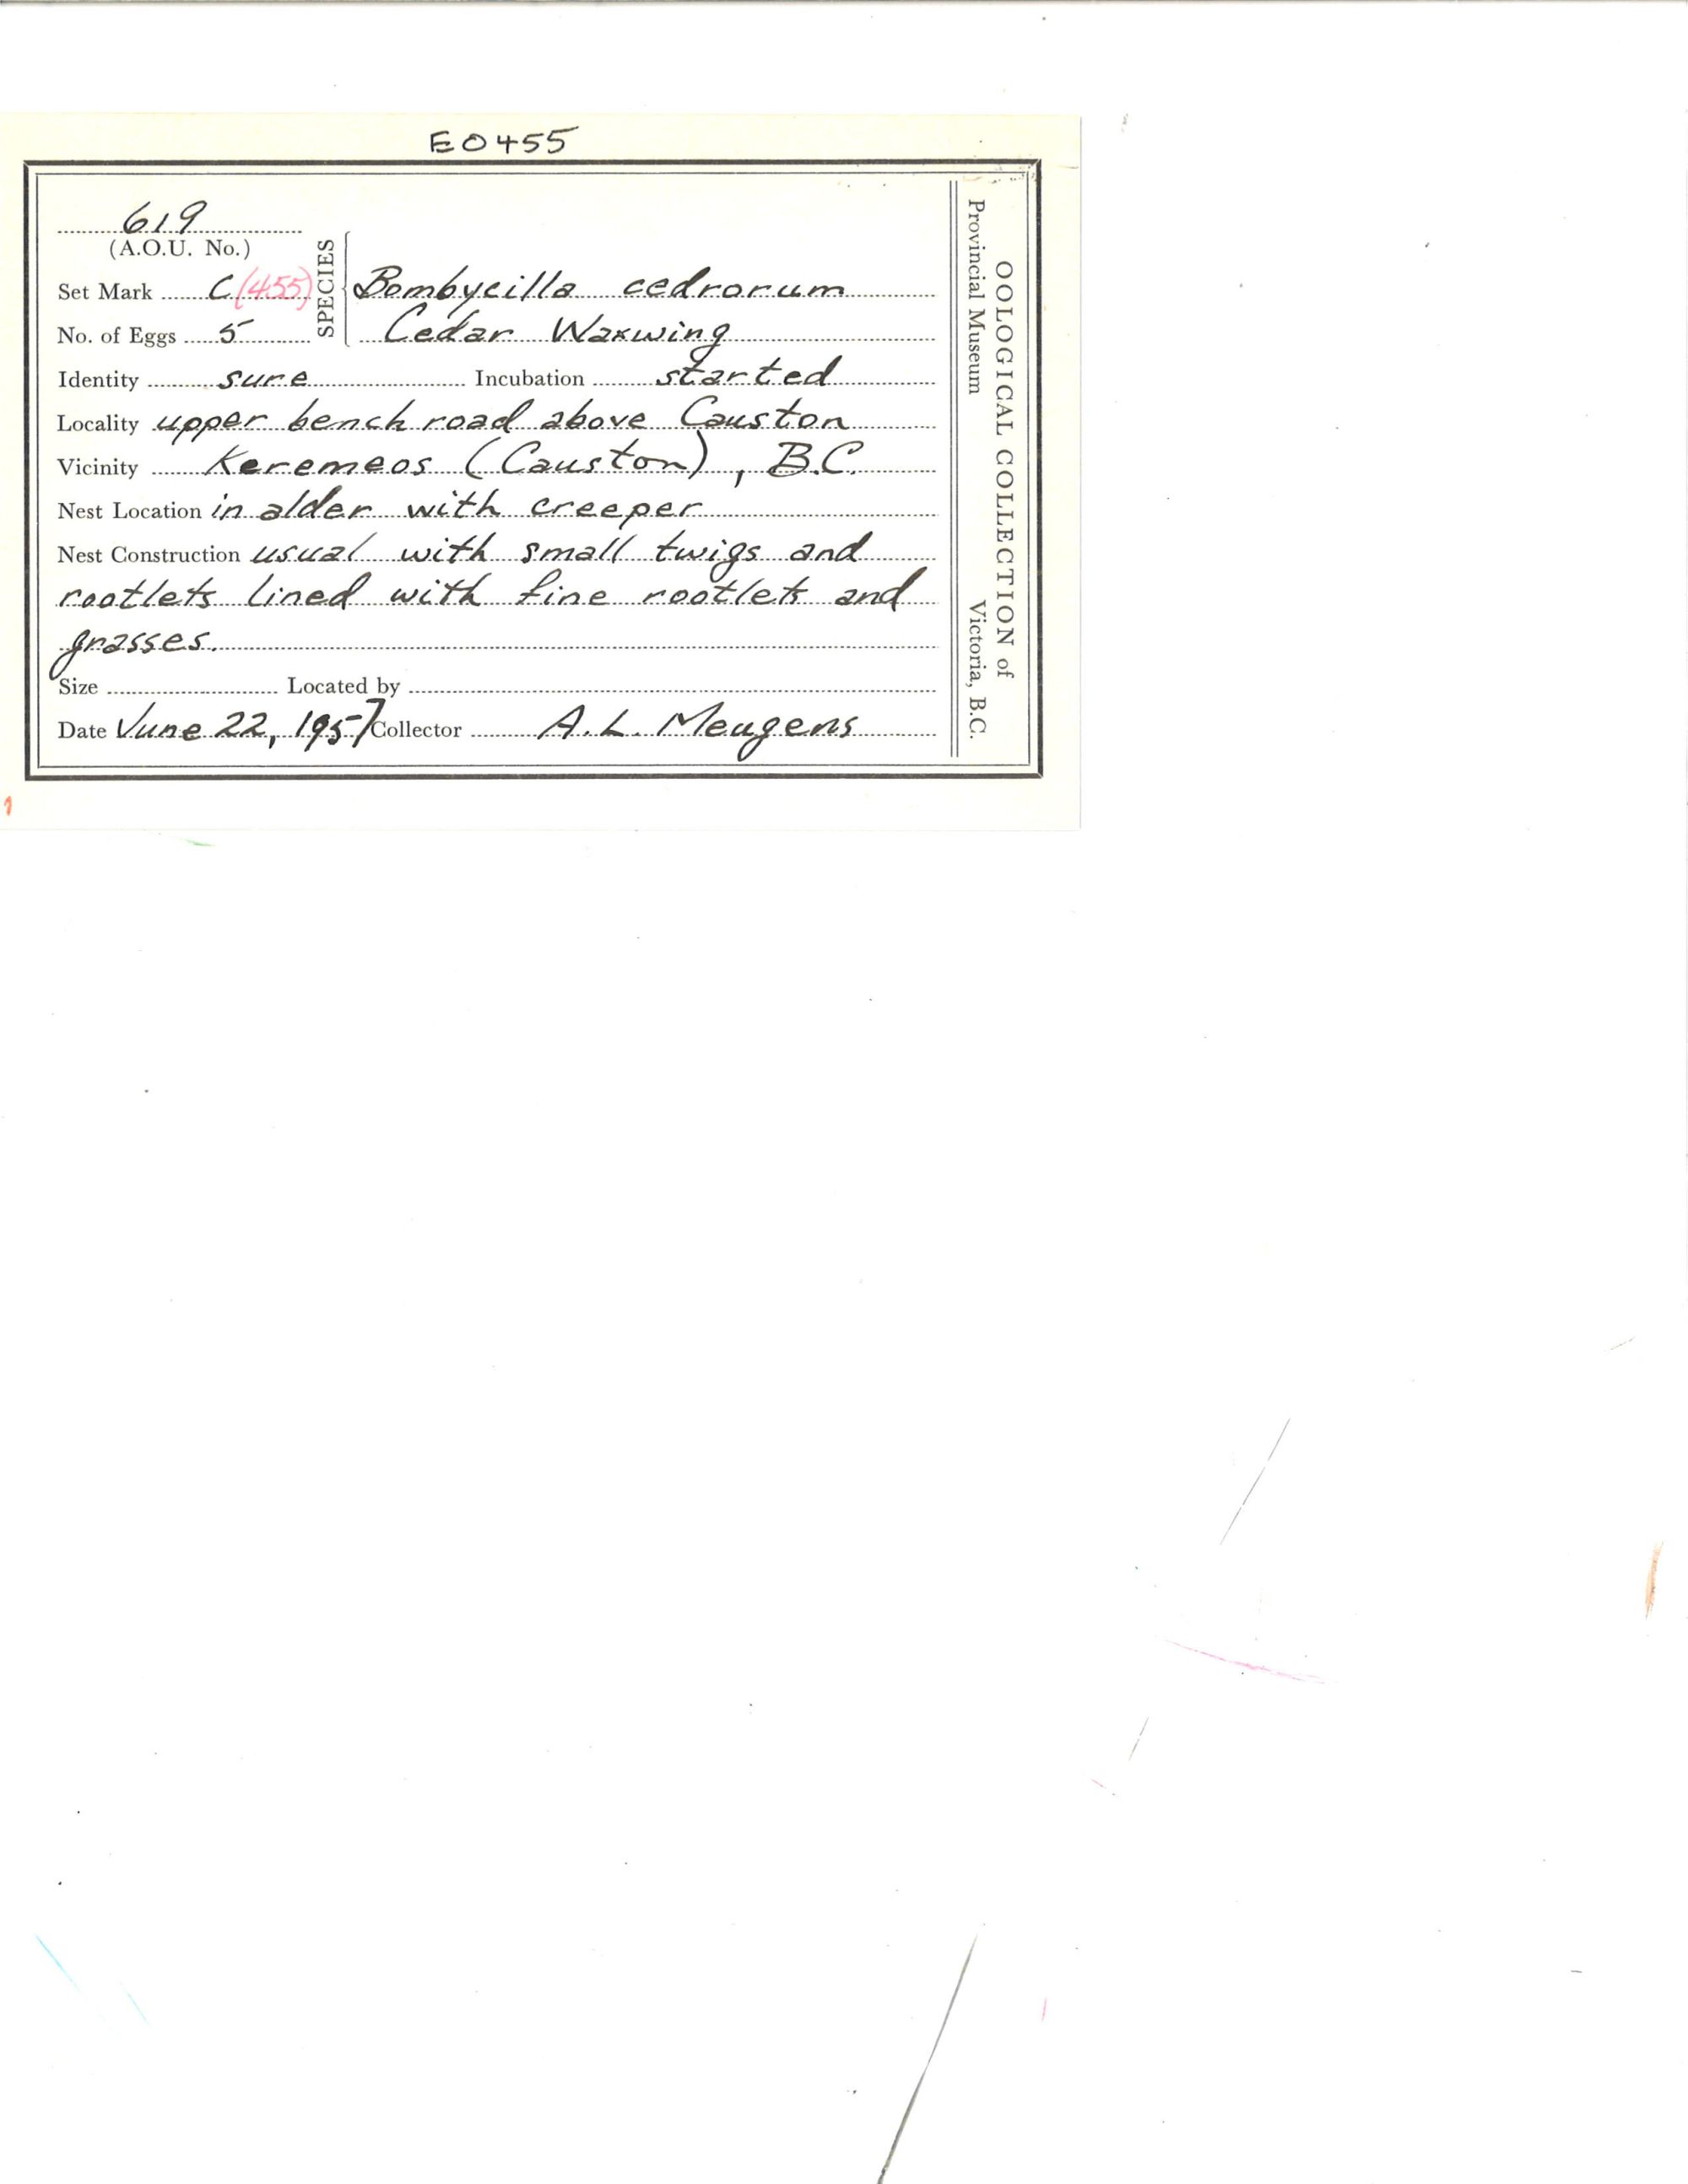 E0455
619
(A.O.U. No.)
Set Mark C (455)
No. of Eggs 5
SPECIES
Bombycilla cedrorum
Cedar Waxwing
Identity sure Incubation started
Locality upper bench road above Causton
Vicinity Keremeos (Causton), B.C.
Nest Location in alder with creeper
Nest Construction usual with small twigs and
rootlets lined with fine rootlets and
grasses.
Size Located by
Date June 22, 1957 Collector A. L. Meugens
OOLOGICAL COLLECTION of
Provincial Museum Victoria, B.C.